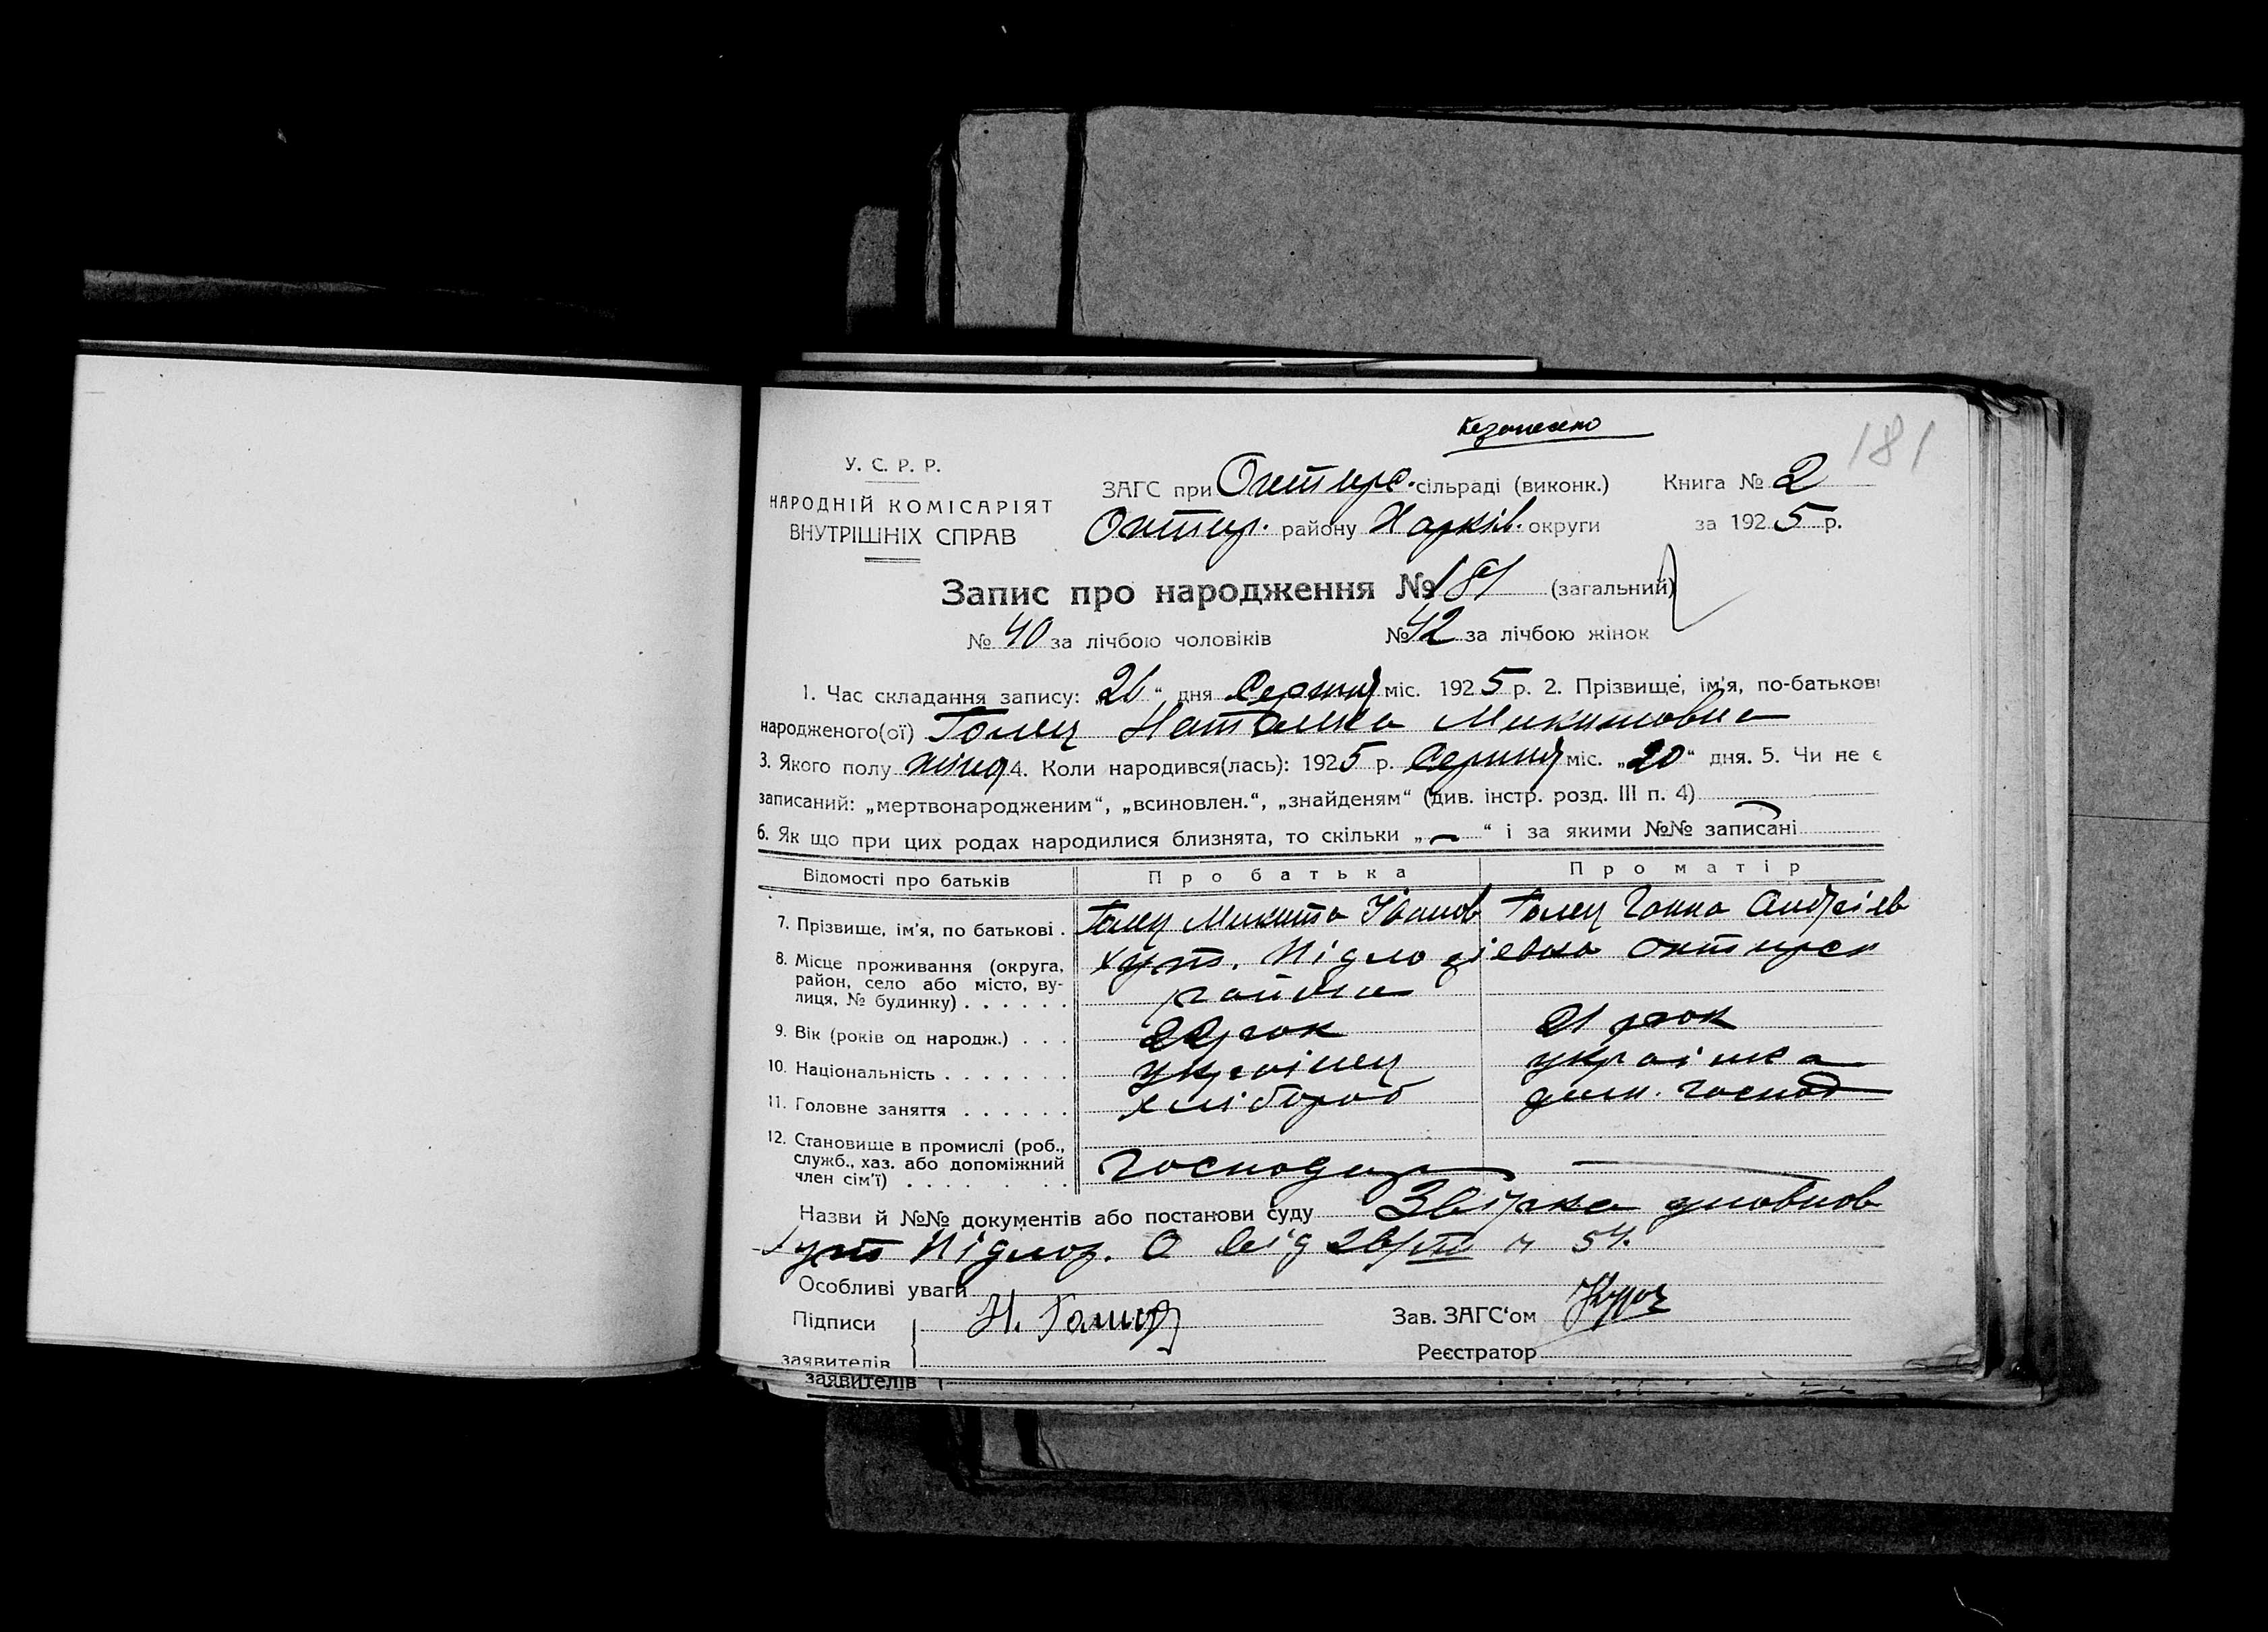 181
У. С. Р. Р.
НАРОДНІЙ КОМІСАРІЯТ
ВНУТРІШНІХ СПРАВ
ЗАГС при Охтирс. сільраді (виконк.) Книга № 2
Охтир. району Харків. округи за 1925 р.
Запис про народження № 181 (загальний)
№ 40 за лічбою чоловіків № 42 за лічбою жінок
1. Час складання запису: „26“ дня Серпня міс. 1925 р. 2. Прізвище, ім'я, по-батькові
народженого(ої) Голец Наталка Микитовна
3. Якого полу жіноч 4. Коли народився(лась): 1925 р. Серпня міс. „20“ дня. 5. Чи не є
записаний: „мертвонародженим“, „всиновлен.“, „знайденям“ (див. інстр. розд. III п. 4)
6. Як що при цих родах народилися близнята, то скільки „ — “ і за якими №№ записані
Відомості про батьків Про батька Про матір
7. Прізвище, ім'я, по батькові . Голец Микита Іванов Голец Ганна Андріїв
8. Місце проживання (округа, район, село або місто, вулиця, № будинку) . . . . . . хут. Охтирск
района
9. Вік (років од народж.) . . . 22 рок 21 рок
10. Національність . . . . . . . українец українка
11. Головне заняття . . . . . . хлібороб дом. господ
12. Становище в промислі (роб.,
служб., хаз. або допоміжний
член сім'ї) . . . . . . . господар —
Назви й №№ документів або постанови суду
від 26/VIII ч 54.
Особливі уваги
Підписи Зав. ЗАГС'ом
заявителів Реєстратор
заявителів